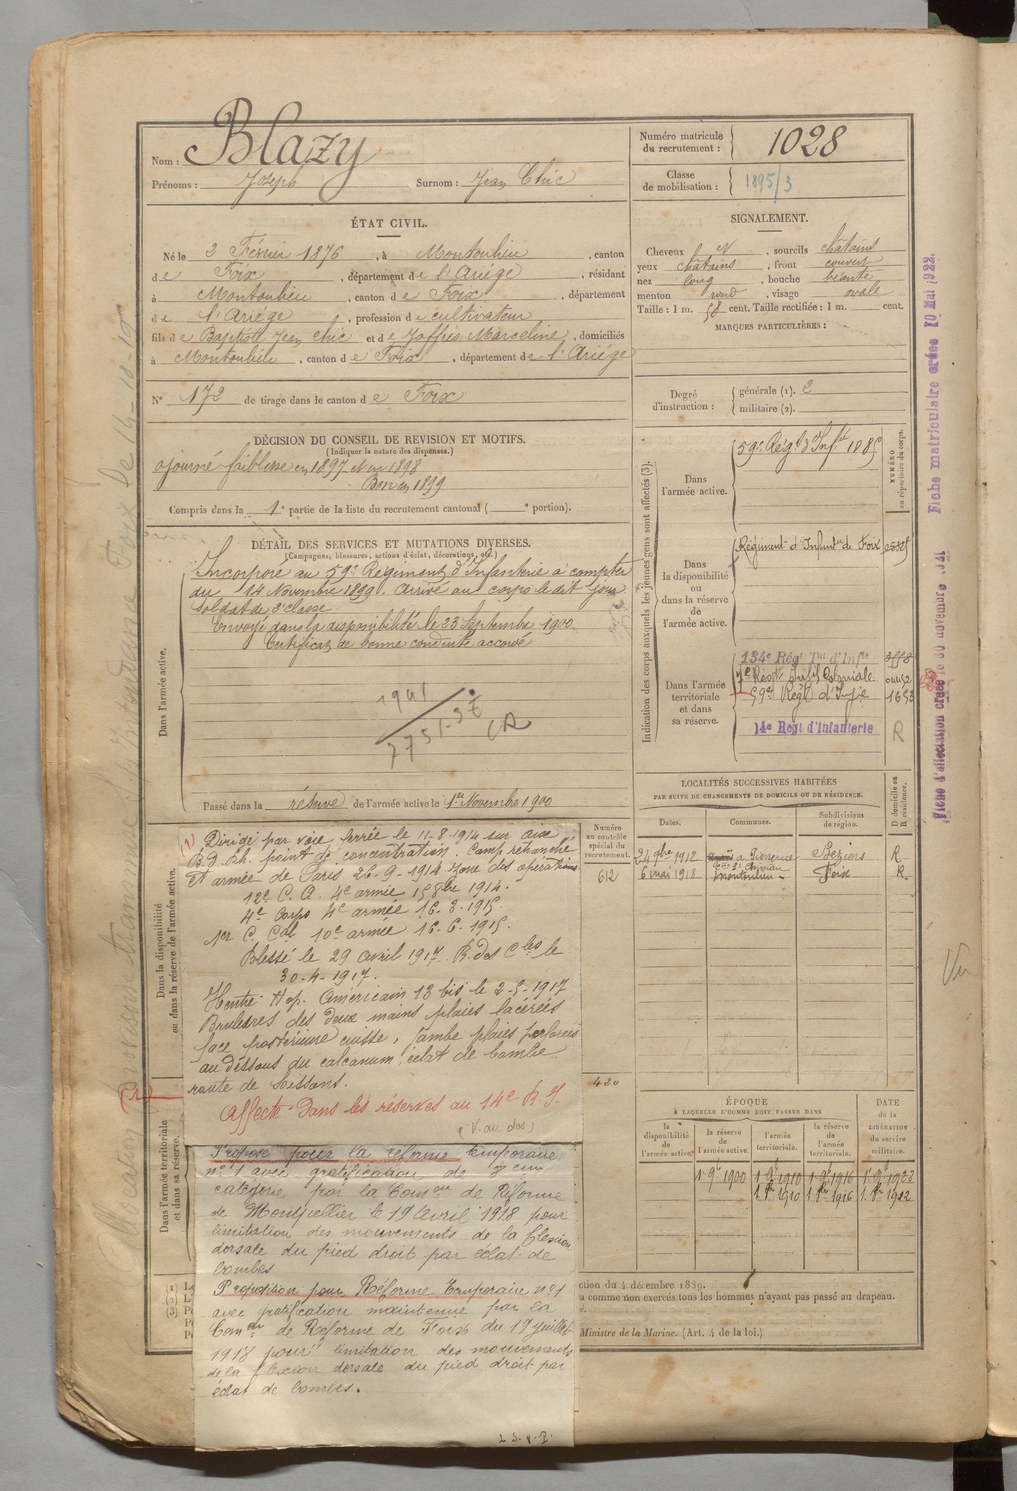 Nom : Blazy
Prénoms : Joseph Surnom : Jean Chic
Numéro matricule du recrutement : 1028
Classe de mobilisation : 1895/3
ÉTAT CIVIL.
Né le 2 Février 1876, à Montoulieu, canton
de Foix, département de l'Ariége, résidant
à Montoulieu, canton de Foix, département
de l'Ariége, profession de cultivateur
fils de Baptiste Jean Chic et de Joffrès Marceline, domiciliés
à Montoulieu, canton de Foix, département de l'Ariége
N° 172 de tirage dans le canton de Foix
SIGNALEMENT.
Cheveux N, sourcils châtains
yeux châtains, front couvert
nez long, bouche béante
menton rond, visage ovale
Taille : 1 m. 58 cent. Taille rectifiée : 1 m. cent.
MARQUES PARTICULIÈRES :
Degré d'instruction : générale (1). 2
militaire (2).
DÉCISION DU CONSEIL DE REVISION ET MOTIFS.
(Indiquer la nature des dispenses.)
ajourné faiblesse en 1897 et en 1898
Bon en 1899
Compris dans la 1e partie de la liste du recrutement cantonal ( e portion).
DÉTAIL DES SERVICES ET MUTATIONS DIVERSES.
(Campagnes, blessures, actions d'éclat, décorations, etc.)
Dans l'armée active.
Incorporé au 59e Régiment d'Infanterie à compter
du 14 Novembre 1899. Arrivé au corps le dit jour
Soldat de 2e classe.
Envoyé dans la disponibilité le 23 Septembre 1900
Certificat de bonne conduite accordé
1941
Passé dans la réserve de l'armée active le 1er Novembre 1900
Indication des corps auxquels les jeunes gens sont affectés (3).
NUMÉRO au répertoire du corps.
Dans l'armée active.
59e Régt d'Infie
Dans la disponibilité ou dans la réserve de l'armée active.
Régiment d'Infanie de Foix
Dans l'armée territoriale et dans sa réserve.
134e Régt Tal d'Infie
Coloniale
59e Régt d'Infie 1653
14e Régt d'Infanterie R
Fiche matriculaire créée 10 Mai 1922.
Fiche d'affectation créée le 30 novembre
LOCALITÉS SUCCESSIVES HABITÉES
PAR SUITE DE CHANGEMENTS DE DOMICILE OU DE RÉSIDENCE.
Dates. Communes. Subdivisions de région. D domicile ou R résidence.
24 9bre 1912 Béziers R
6 mai 1918 Montoulieu Foix R.
Numéro au contrôle spécial du recrutement.
612
430
Dans la disponibilité ou dans la réserve de l'armée active.
Dirigé par voie ferrée le 11-8-1914 sur
B. d. Rh. point de concentration. Camp retranché
et armée de Paris 26-9-1914 zone des opérations
12e C. A. 4e armée 15 8bre 1914.
4e Corps 4e armée 16-3-1915.
1er C. Col 10e armée 16-6-1915.
Blessé le 29 avril 1917
30-4-1917.
Hop. Américain 13 bis le 2-5-1917
Brulures des deux mains plaies lacérées
face postérieure cuisse, jambe plaies perforées
au dessous du calcanum éclat de bombe
route de Soissons.
Affecté dans les réserves au 14e R. I.
(V. au dos)
Dans l'armée territoriale et dans sa réserve.
Proposé pour la réforme temporaire
n° 1 avec gratification de
catégorie par la Comon de Réforme
de Montpellier le 19 Avril 1918 pour
limitation des mouvements de la flexion
dorsale du pied droit par éclat de
bombes
Proposition pour Réforme Temporaire n° 1
avec gratification maintenue par la
Comon de Réforme de Foix du 19 juillet
1918 pour limitation des mouvements
de la flexion dorsale du pied droit par
éclat de bombes.
ÉPOQUE
À LAQUELLE L'HOMME DOIT PASSER DANS
la disponibilité de l'armée active.
la réserve de l'armée active.
l'armée territoriale.
la réserve de l'armée territoriale.
DATE de la LIBÉRATION du service militaire.
1er 9bre 1900 1er 9bre 1910 1er 9bre 1916 1er 9bre 1922
ction du 4 décembre 1889.
a comme non exercés tous les hommes n'ayant pas passé au drapeau.
Ministre de la Marine. (Art. 4 de la loi.)
Vu